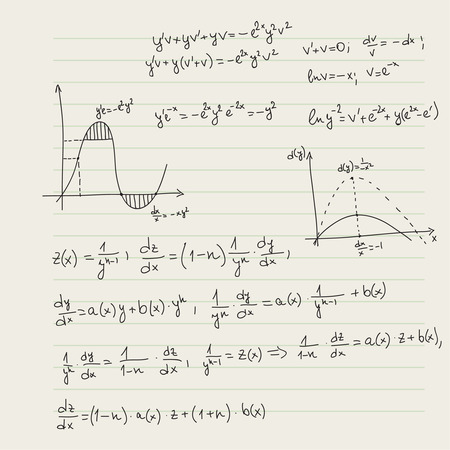 y'v+yv'+yv=-e²ˣy²v²
y'v+y(v'+v)=-e²ˣy²v²
v'+v=0; dv/v=-dx;
lnv=-x; v=e⁻ˣ
y'e=-e²y²
y'e⁻ˣ=-e²ˣy²e⁻²ˣ=-y²
lny⁻²=v'+e⁻²ˣ+y(e²ˣ-e')
dx/x=-xy²
d(y)
d(y)=1/-x²
dx/x=-1
x
z(x)=1/yⁿ⁻¹; dz/dx=(1-n)1/yⁿ·dy/dx;
dy/dx=a(x)y+b(x)·yⁿ; 1/yⁿ·dy/dx=a(x)·1/yⁿ⁻¹+b(x)
1/yⁿ·dy/dx=1/1-n·dz/dx; 1/yⁿ⁻¹=z(x)⇒1/1-n·dz/dx=a(x)·z+b(x),
dz/dx=(1-n)·a(x)·z+(1+n)·b(x)